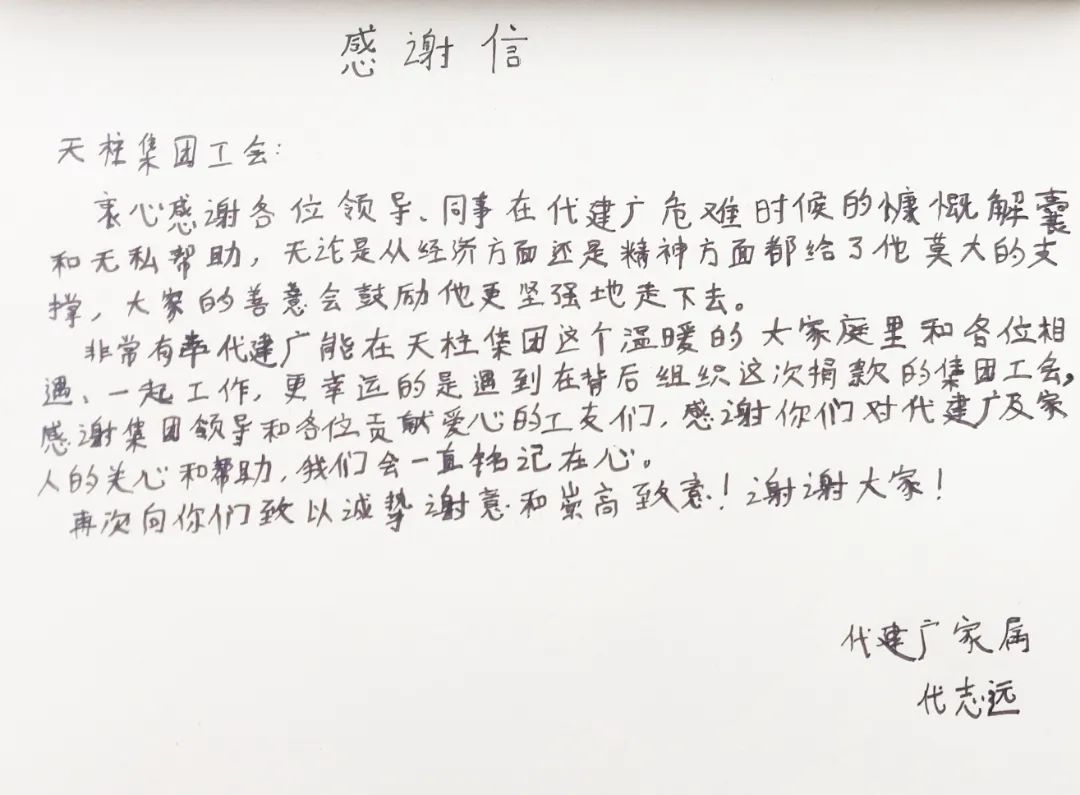 感谢信
天柱集团工会:
衷心感谢各位领导、同事在代建广危难时候的慷慨解囊
和无私帮助,无论是从经济方面还是精神方面都给了他莫大的支
撑,大家的善意会鼓励他更坚强地走下去。
非常有幸代建广能在天柱集团这个温暖的大家庭里和各位相
遇、一起工作,更幸运的是遇到在背后组织这次捐款的集团工会,
感谢集团领导和各位贡献爱心的工友们,感谢你们对代建广及家
人的关心和帮助,我们会一直铭记在心。
再次向你们致以诚挚谢意和崇高致意!谢谢大家!
代建广家属
代志远